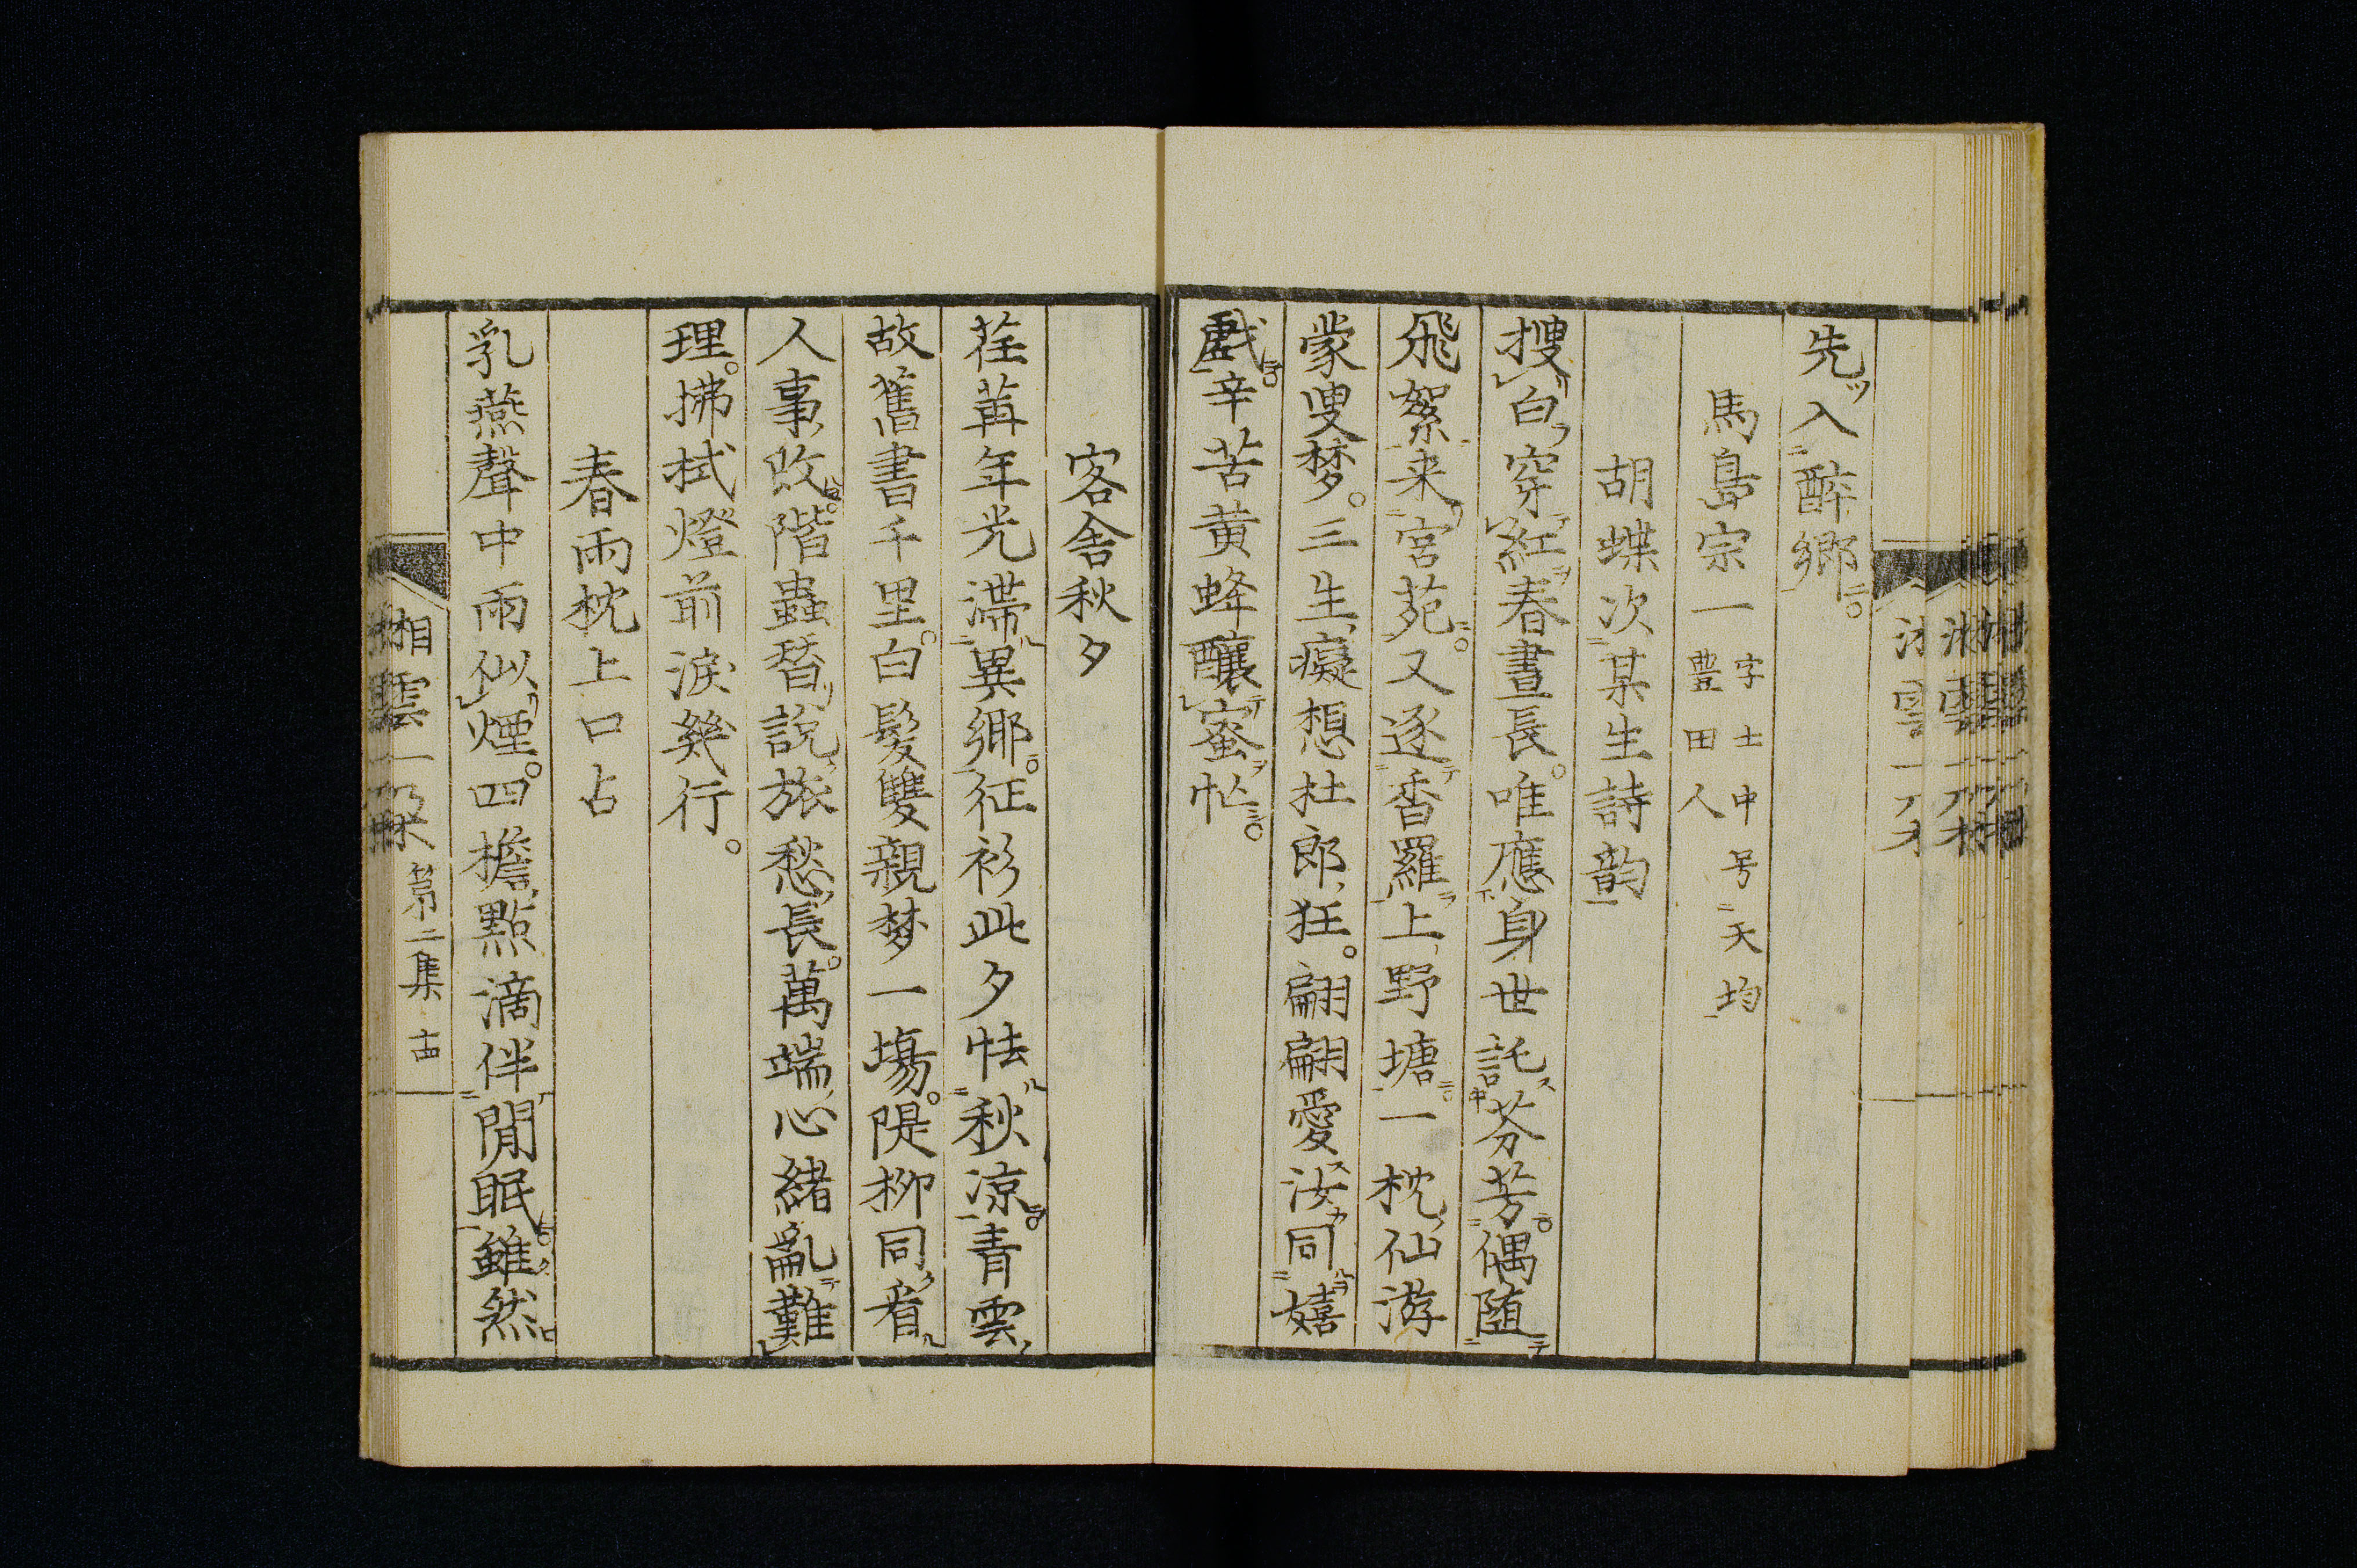 先入醉鄉。
馬島宗一 字士中号天均
豊田人
胡蝶次某生詩韵
搜白穿紅春晝長。唯應身世託芬芳。偶随
飛絮来宮苑。又逐香羅上野塘。一枕仙游
蒙叟梦。三生癡想杜郎狂。翩翩愛汝同嬉
戲。辛苦黄蜂釀蜜忙。
客舎秋夕
荏苒年光滞異鄉。征衫此夕怯秋凉。青雲
故舊書千里。白髮雙親梦一場。隄柳同看
人事改。階蟲替說旅愁長。萬端心緒亂難
理。拂拭燈前淚幾行。
春雨枕上口占
乳燕聲中雨似煙。四檐點滴伴閒眠。雖然
湘雲一朶 第二集 十四